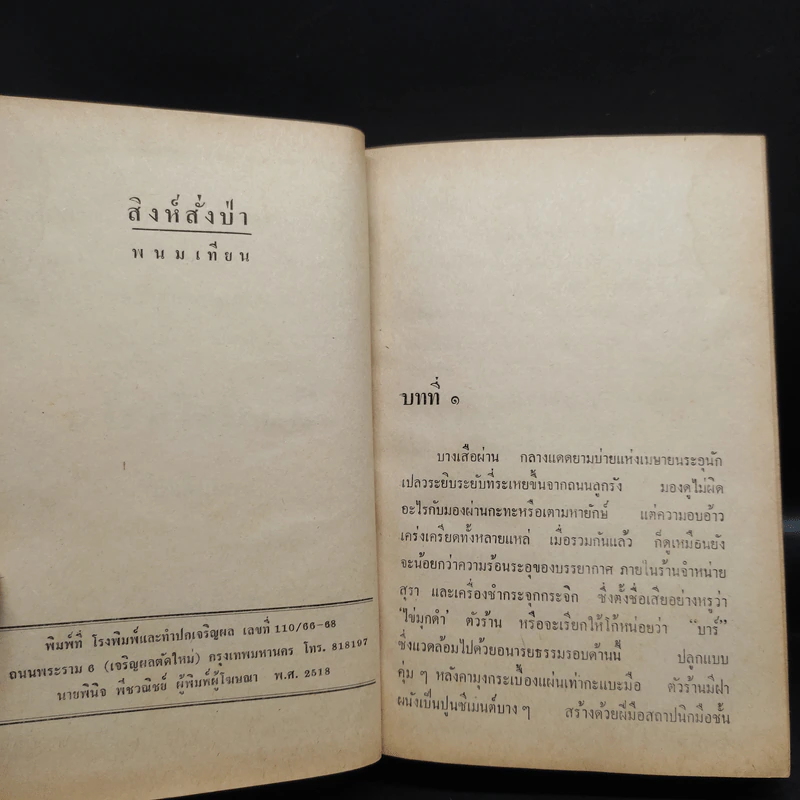 สิงห์สั่งป่า
พนมเทียน
พิมพ์ที่ โรงพิมพ์และทำปกเจริญผล เลขที่ 110/66-68
ถนนพระราม 6 (เจริญผลตัดใหม่) กรุงเทพมหานคร โทร. 818197
นายพินิจ พืชวณิชย์ ผู้พิมพ์ผู้โฆษณา พ.ศ. 2518
บทที่ ๑
บางเสือผ่าน กลางแดดยามบ่ายแห่งเมษายนระอุนัก
เปลวระยิบระยับที่ระเหยขึ้นจากถนนลูกรัง มองดูไม่ผิด
อะไรกับมองผ่านกะทะหรือเตามหายักษ์ แต่ความอบอ้าว
เคร่งเครียดทั้งหลายแหล่ เมื่อรวมกันแล้ว ก็ดูเหมือนยัง
จะน้อยกว่าความร้อนระอุของบรรยากาศ ภายในร้านจำหน่าย
สุรา และเครื่องชำกระจุกกระจิก ซึ่งตั้งชื่อเสียอย่างหรูว่า
'ไข่มุกดำ' ตัวร้าน หรือจะเรียกให้โก้หน่อยว่า "บาร์"
ซึ่งแวดล้อมไปด้วยอนารยธรรมรอบด้านนี้ ปลูกแบบ
คุ่ม ๆ หลังคามุงกระเบื้องแผ่นเท่ากะแบะมือ ตัวร้านมีฝา
ผนังเป็นปูนซีเมนต์บาง ๆ สร้างด้วยฝีมือสถาปนิกมือชั้น